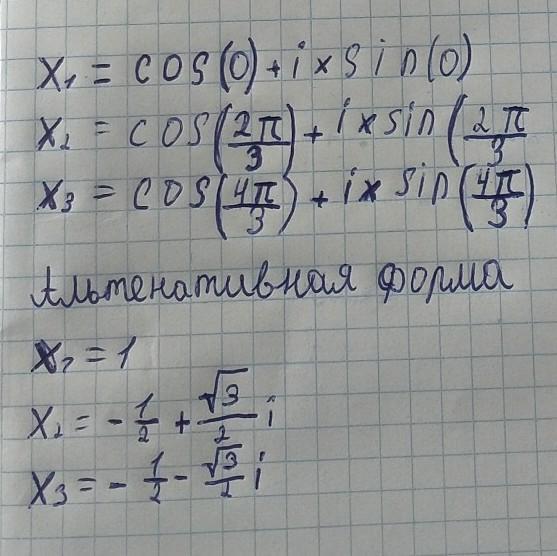 x₁ = cos(0) + i × sin(0)
x₂ = cos(2π/3) + i × sin(2π/3
x₃ = cos(4π/3) + i × sin(4π/3)
Альтенативная форма
x₁ = 1
x₂ = - 1/2 + √3/2 i
x₃ = - 1/2 - √3/2 i